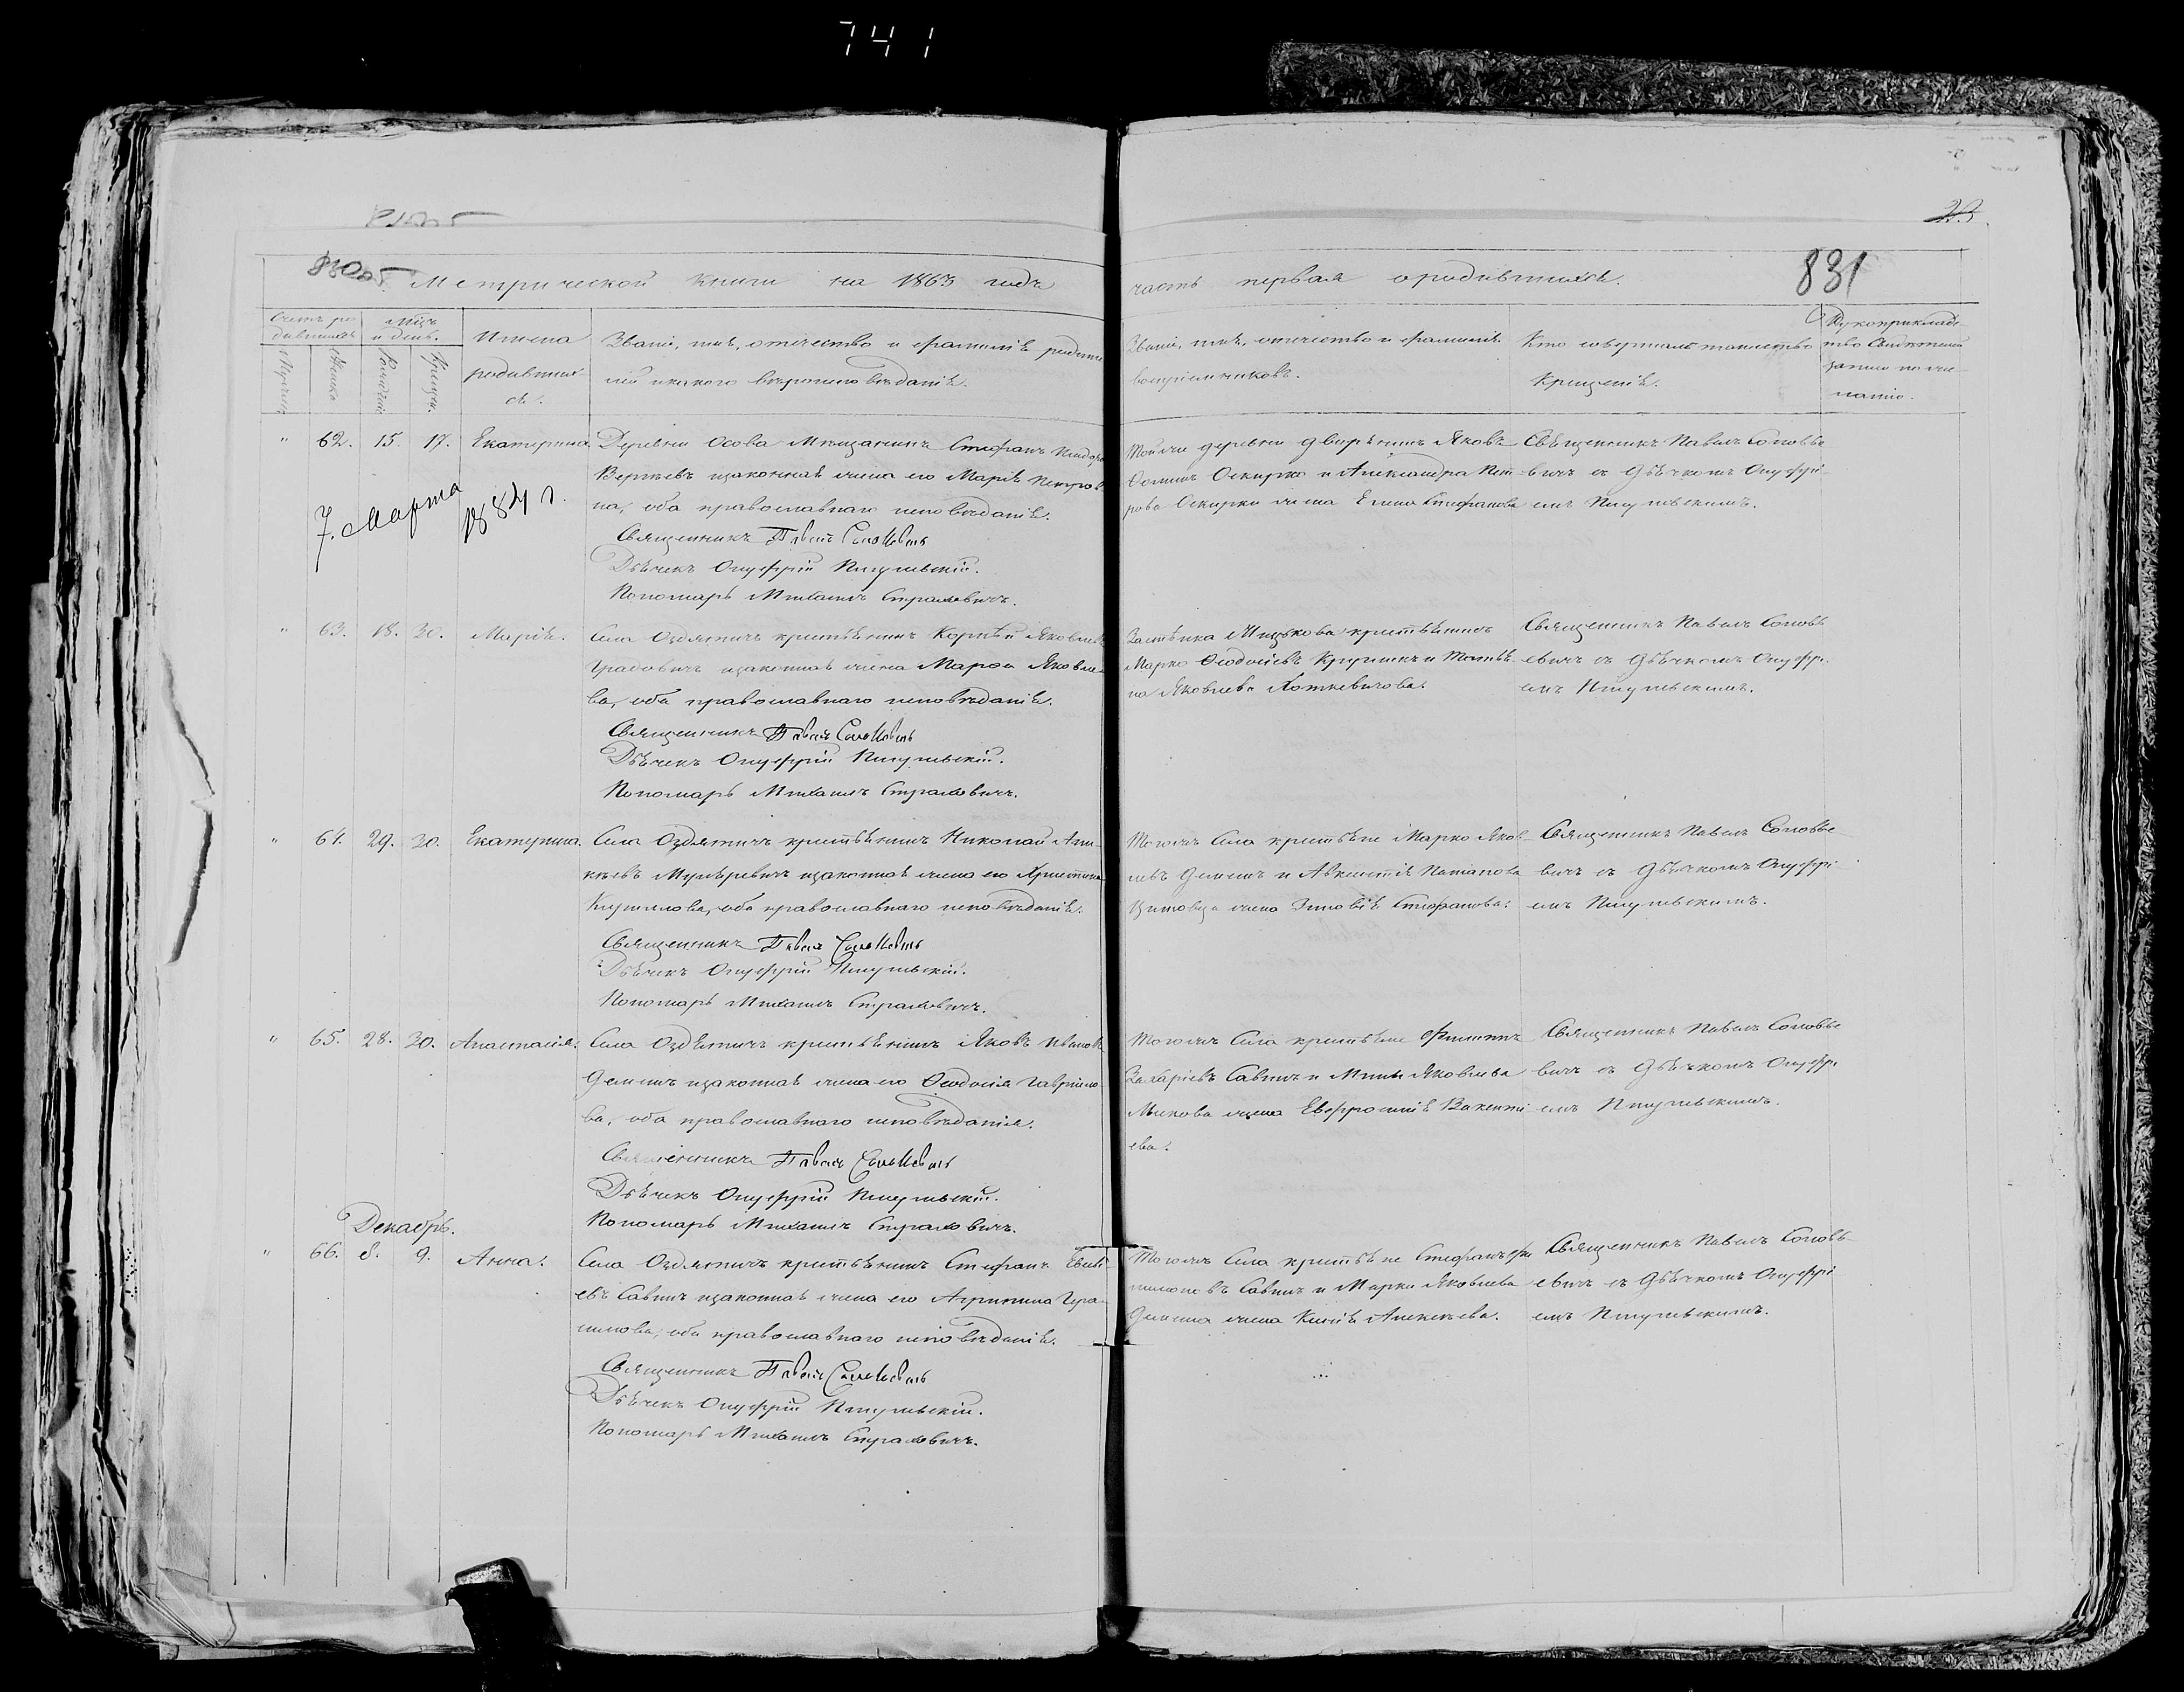 741
830об.
Метрической книги на 1863 годъ
часть первая о родившихся.
831
Счетъ ро-
дившихся
Мцъ
и день.
Имена
родивших-
ся.
Званіе, имя, отчество и фамилія родите-
лей и какого вѣроисповѣданія.
Званіе, имя, отчество и фамилія
воспріемниковъ.
Кто совершалъ таинство
Крещенія.
Рукоприклад-
ство Свидѣтелей
записи по же-
ланію.
Женска
Рожденія
Крещен.
" 62. 15. 17. Екатерина.
Деревни Осова Мѣщанинъ Стефанъ
законная жена его Марія Петров-
на, оба православнаго исповѣданія.
Священникъ Павелъ Соловьевичъ
Дьячекъ Онуфрій
Пономарь Михаилъ Страховичъ.
7. Марта 1884 г.
Той же деревни дворянинъ Яковъ
Оскирко и Александра Пет-
рова Оскирки жена Елена Стефанова
Священникъ Павелъ Соловье-
вичъ съ Дьячкомъ Онуфрі-
емъ
" 63. 18. 20. Марія.
Села Оздятичъ крестьянинъ Корнѣй Яковлев
законная жена Марѳа Яковле-
ва, оба православнаго исповѣданія.
Священникъ Павелъ Соловьевичъ
Дьячекъ Онуфрій
Пономарь Михаилъ Страховичъ.
крестьянинъ
Марко Ѳеодосіевъ и Татья-
на Яковлева
Священникъ Павелъ Соловь-
евичъ съ Дьячкомъ Онуфрі-
емъ
" 64. 29. 30. Екатерина.
Села Оздятичъ крестьянинъ Николай
законная жена его Христина
Кирилова, оба православнаго исповѣданія.
Священникъ Павелъ Соловьевичъ
Дьячекъ Онуфрій
Пономарь Михаилъ Страховичъ.
Того же Села крестьяне Марко Яков-
левъ Демешъ и
жена Зиновія Стефанова.
Священникъ Павелъ Соловье-
вичъ съ Дьячкомъ Онуфрі-
емъ
" 65. 28. 30. Анастасія.
Села Оздятичъ крестьянинъ Яковъ Ивановъ
Демешъ законная жена его Ѳеодосія Гаврило-
ва, оба православнаго исповѣданія.
Священникъ Павелъ Соловьевичъ
Дьячекъ Онуфрій
Пономарь Михаилъ Страховичъ.
Того же Села крестьяне Филипъ
Захаріевъ Савичъ и Яковлева
жена Евфросинія Викенті-
ева.
Священникъ Павелъ Соловье-
вичъ съ Дьячкомъ Онуфрі-
емъ
Декабрь.
" 66. 8. 9. Анна.
Села Оздятичъ крестьянинъ Стефанъ
евъ Савичъ законная жена его Агрипина Гера-
симова, оба православнаго исповѣданія.
Священникъ Павелъ Соловьевичъ
Дьячекъ Онуфрій
Пономарь Михаилъ Страховичъ.
Того же Села крестьяне Стефанъ Фи-
лимоновъ Савичъ и Марки Яковлева
Демеша жена Ксенія Алексѣева.
Священникъ Павелъ Соловь-
евичъ съ Дьячкомъ Онуфрі-
емъ